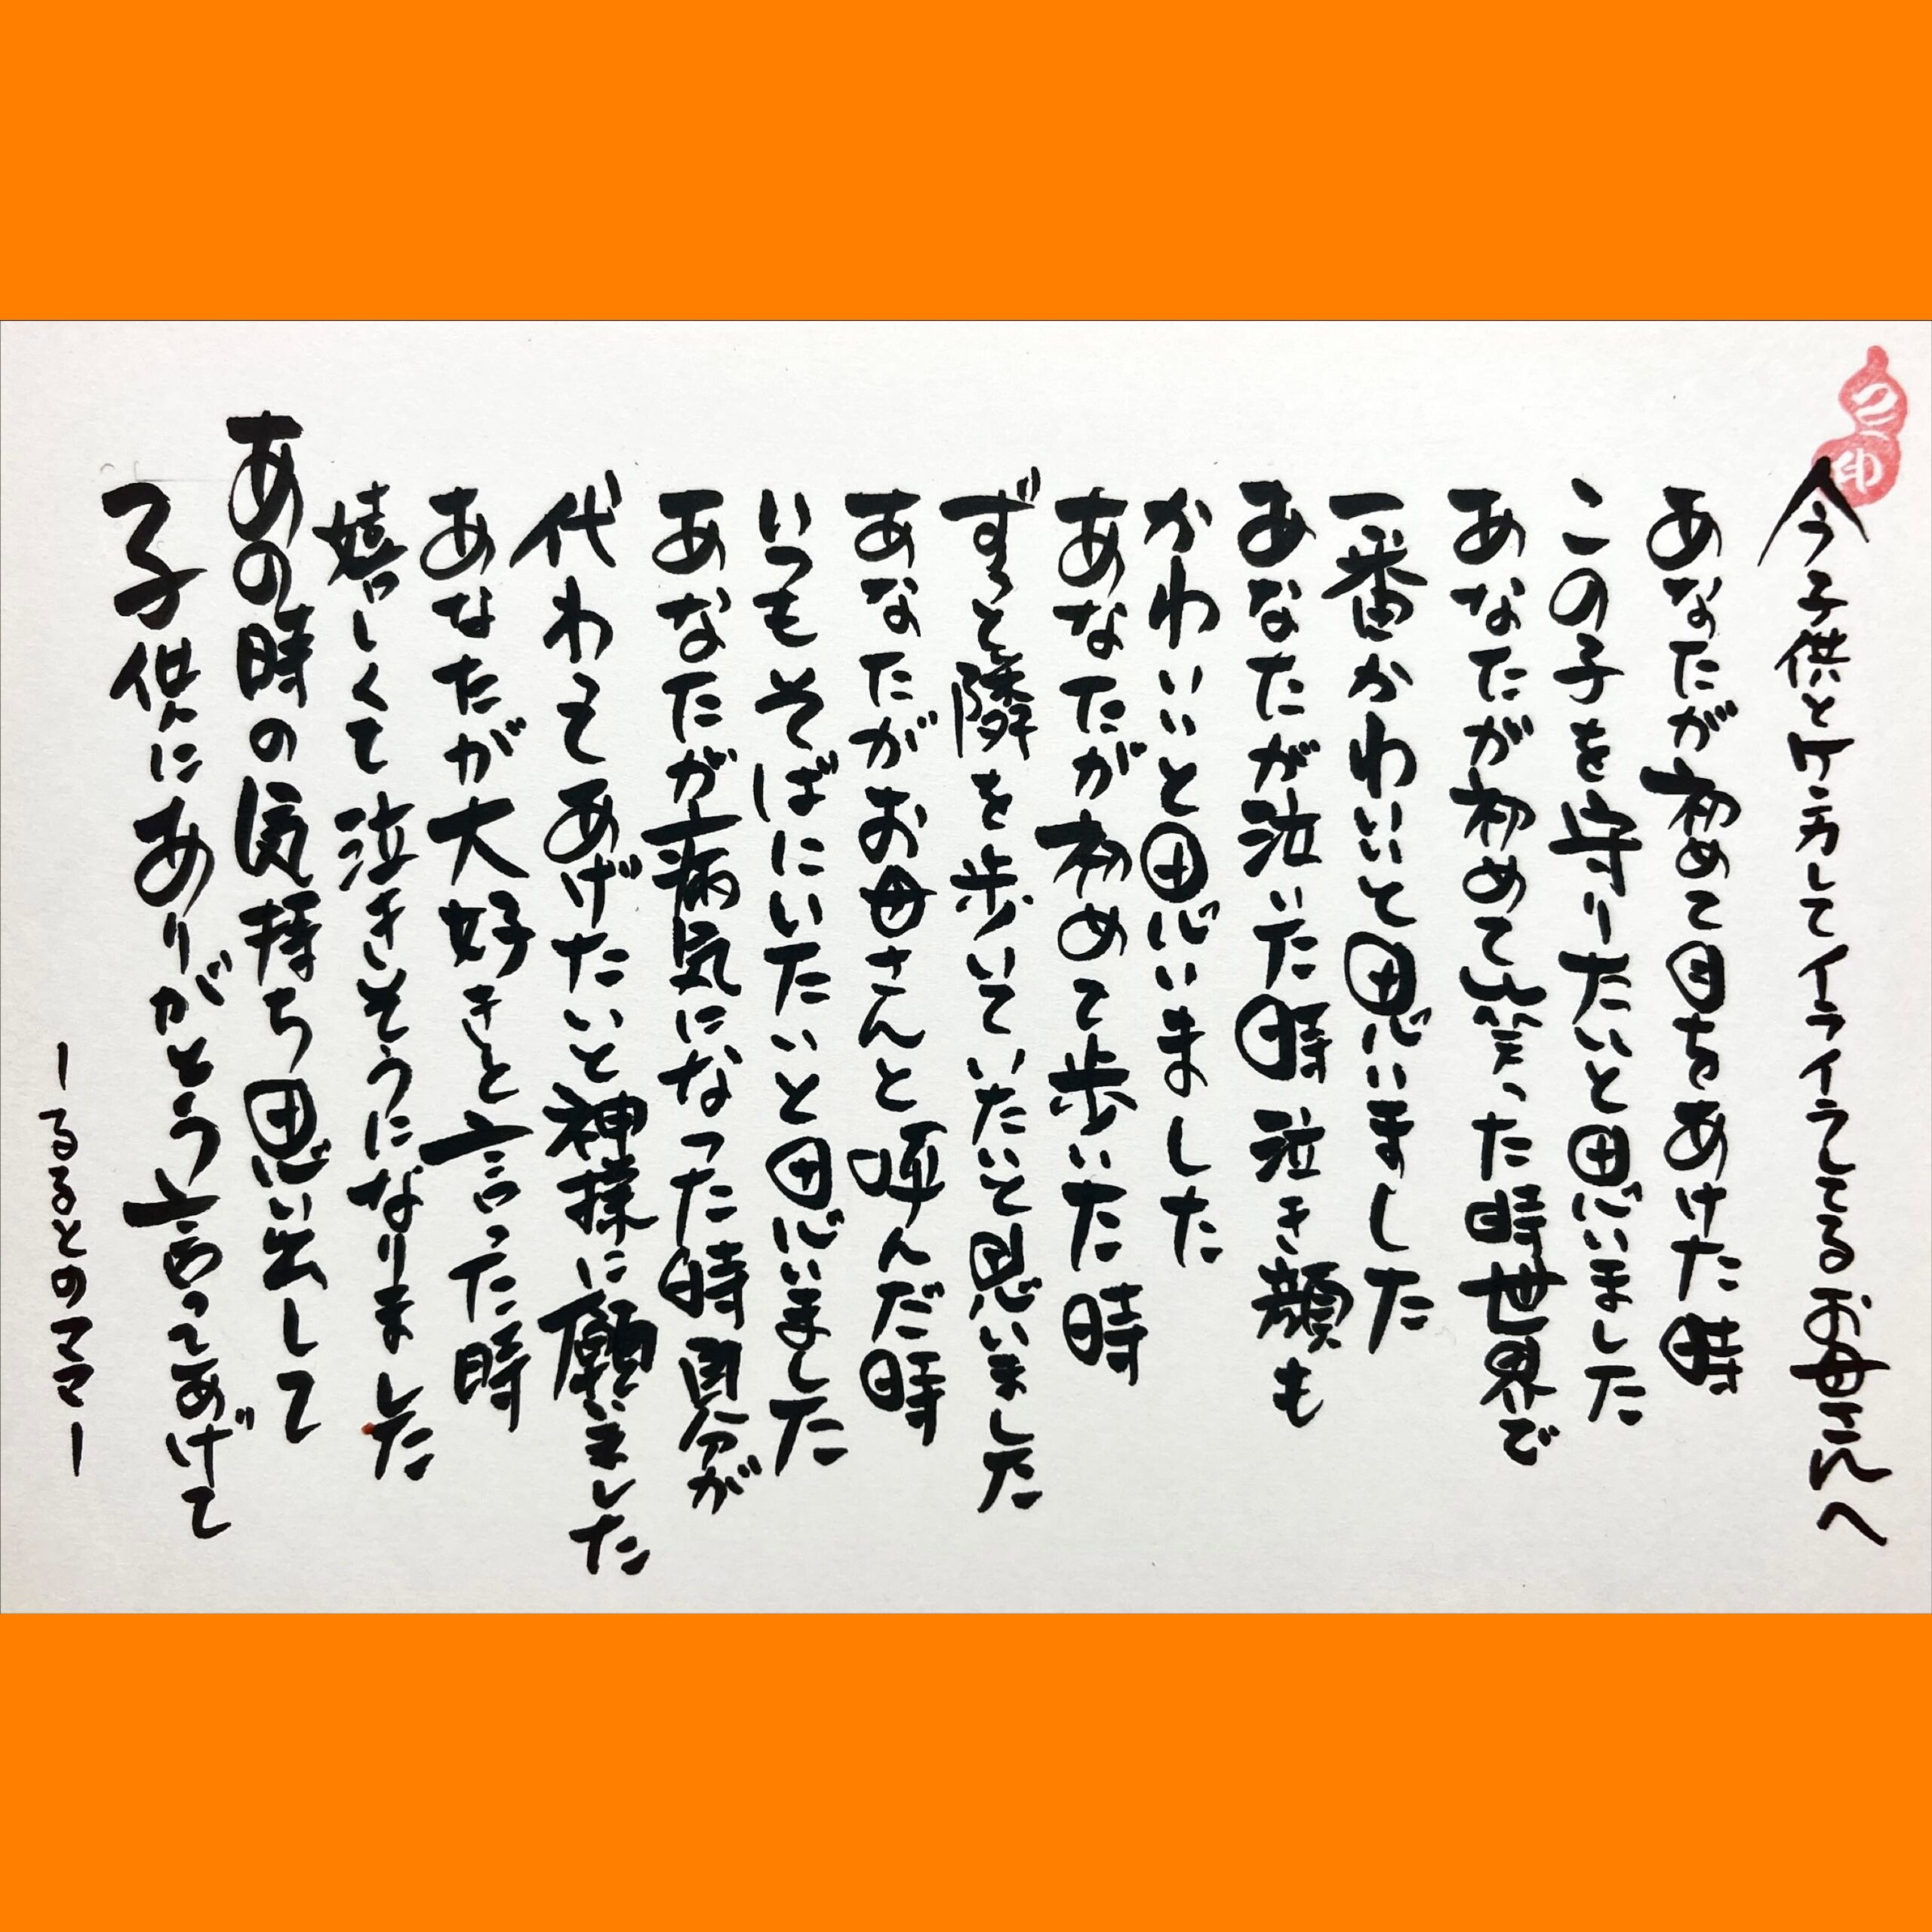 今子供とケンカしてイライラしてるお母さんへ
あなたが初めて目をあけた時
この子を守りたいと思いました
あなたが初めて笑った時世界で
一番かわいいと思いました
あなたが泣いた時泣き顔も
かわいいと思いました
あなたが初めて歩いた時
ずっと隣を歩いていたいと思いました
あなたがお母さんと呼んだ時
いつもそばにいたいと思いました
あなたが病気になった時自分が
代わってあげたいと神様に願いました
あなたが大好きと言った時
嬉しくて泣きそうになりました
あの時の気持ち思い出して
子供にありがとう言ってあげて
ーるるとのママー